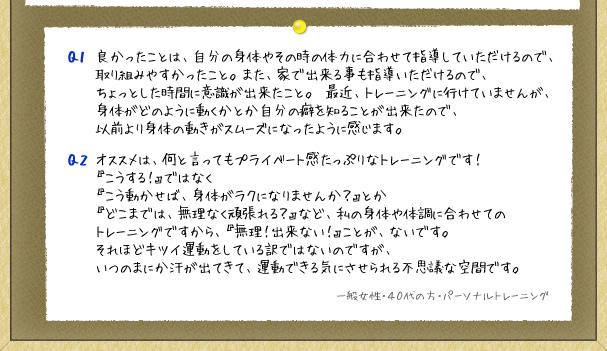 Q.1 良かったことは、自分の身体やその時の体力に合わせて指導していただけるので、
取り組みやすかったこと。また、家で出来る事も指導いただけるので、
ちょっとした時間に意識が出来たこと。 最近、トレーニングに行けていませんが、
身体がどのように動くかとか自分の癖を知ることが出来たので、
以前より身体の動きがスムーズになったように感じます。
Q.2 オススメは、何と言ってもプライベート感たっぷりなトレーニングです！
『こうする！』ではなく
『こう動かせば、身体がラクになりませんか？』とか
『どこまでは、無理なく頑張れる？』など、私の身体や体調に合わせての
トレーニングですから、『無理！出来ない！』ことが、ないです。
それほどキツイ運動をしている訳ではないのですが、
いつのまにか汗が出てきて、運動できる気にさせられる不思議な空間です。
一般女性・40代の方・パーソナルトレーニング